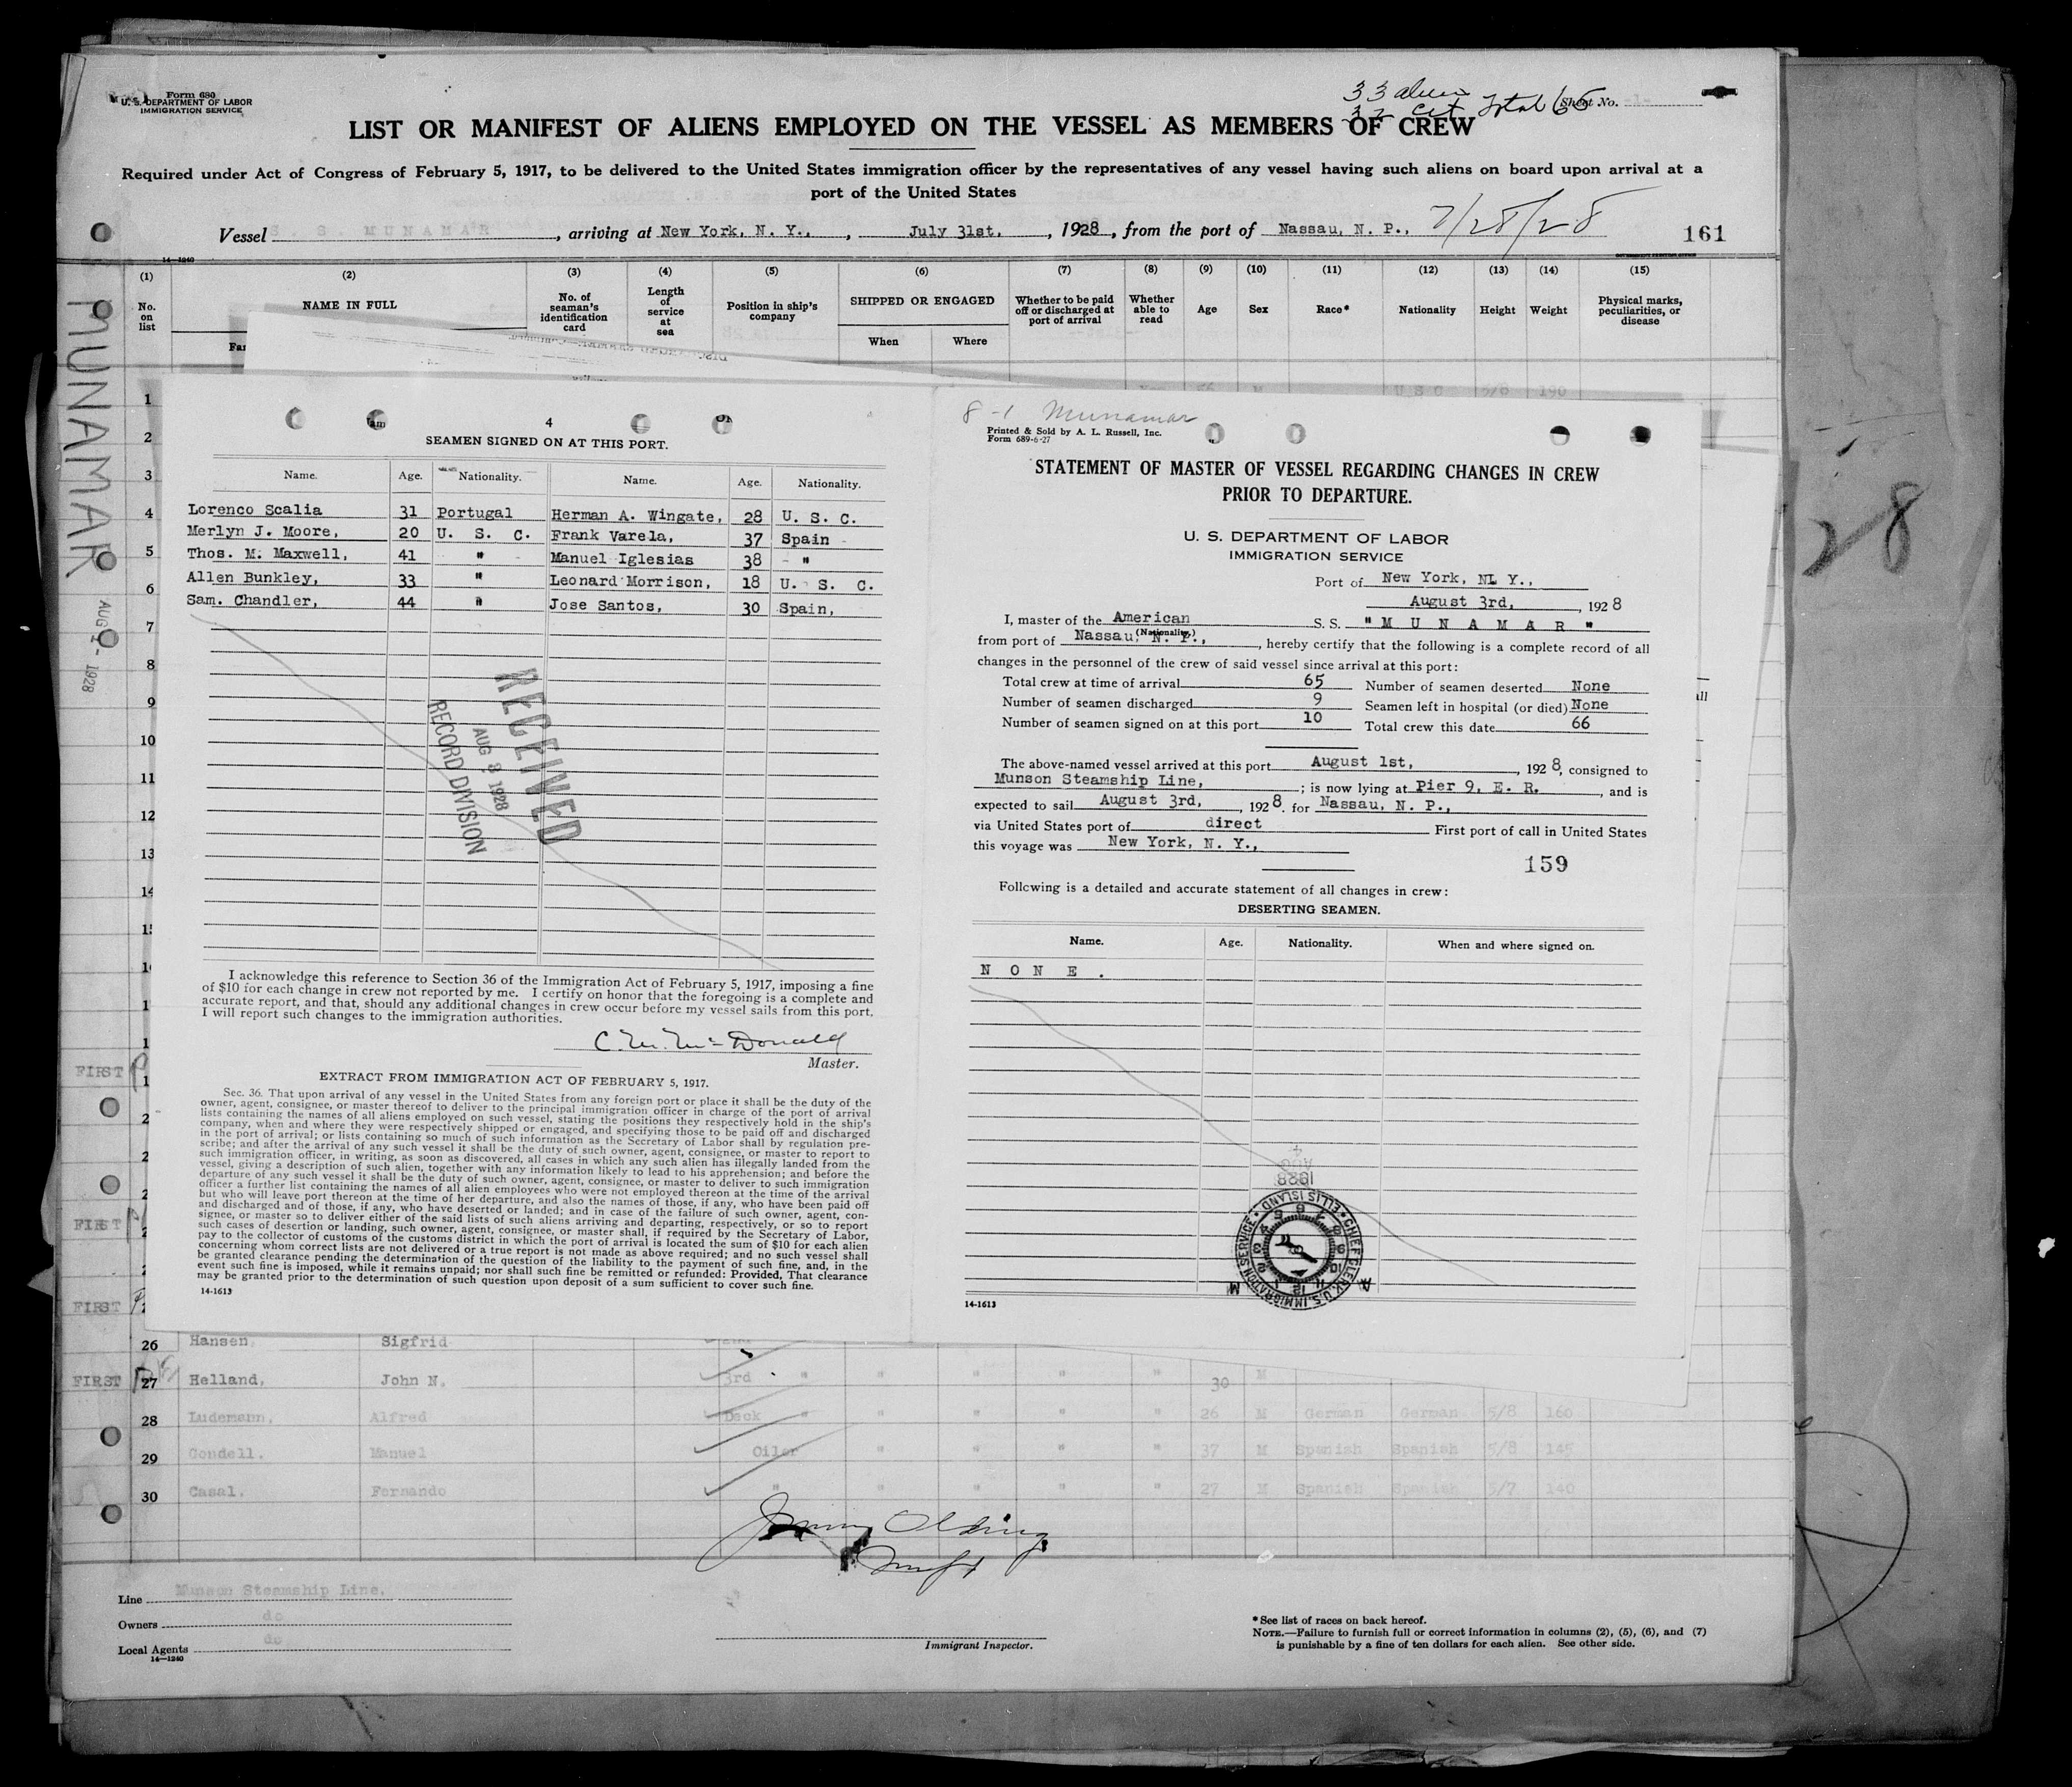 Form 680
U. S. DEPARTMENT OF LABOR
IMMIGRATION SERVICE
33 alien
32 Cit Total 65
Sheet No. -1-
LIST OR MANIFEST OF ALIENS EMPLOYED ON THE VESSEL AS MEMBERS OF CREW
Required under Act of Congress of February 5, 1917, to be delivered to the United States immigration officer by the representatives of any vessel having such aliens on board upon arrival at a
port of the United States
Vessel S. S. MUNAMAR, arriving at New York, N. Y., , July 31st, , 1928, from the port of Nassau, N. P., 7/28/28 161
14—1240
GOVERNMENT PRINTING OFFICE
(1) (2) (3) (4) (5) (6) (7) (8) (9) (10) (11) (12) (13) (14) (15)
No. on list
NAME IN FULL
No. of seaman's identification card
Length of service at sea
Position in ship's company
SHIPPED OR ENGAGED
When Where
Whether to be paid off or discharged at port of arrival
Whether able to read
Age
Sex
Race*
Nationality
Height
Weight
Physical marks, peculiarities, or disease
56 M U S C 5/8 190
MUNAMAR
AUG 1 - 1928
28
1
2
3
4
5
6
7
8
9
10
11
12
13
14
4
SEAMEN SIGNED ON AT THIS PORT.
Name. Age. Nationality. Name. Age. Nationality.
Lorenco Scalia 31 Portugal Herman A. Wingate, 28 U. S. C.
Merlyn J. Moore, 20 U. S. C. Frank Varela, 37 Spain -
Thos. M. Maxwell, 41 " Manuel Iglesias 38 - "
Allen Bunkley, 33 " Leonard Morrison, 18 U. S. C.
Sam. Chandler, 44 " Jose Santos, 30 Spain,
RECEIVED
AUG 3 1928
RECORD DIVISION
I acknowledge this reference to Section 36 of the Immigration Act of February 5, 1917, imposing a fine
of $10 for each change in crew not reported by me. I certify on honor that the foregoing is a complete and
accurate report, and that, should any additional changes in crew occur before my vessel sails from this port,
I will report such changes to the immigration authorities.
C. M. McDonald
Master.
EXTRACT FROM IMMIGRATION ACT OF FEBRUARY 5, 1917.
Sec. 36. That upon arrival of any vessel in the United States from any foreign port or place it shall be the duty of the
owner, agent, consignee, or master thereof to deliver to the principal immigration officer in charge of the port of arrival
lists containing the names of all aliens employed on such vessel, stating the positions they respectively hold in the ship's
company, when and where they were respectively shipped or engaged, and specifying those to be paid off and discharged
in the port of arrival; or lists containing so much of such information as the Secretary of Labor shall by regulation pre-
scribe; and after the arrival of any such vessel it shall be the duty of such owner, agent, consignee, or master to report to
such immigration officer, in writing, as soon as discovered, all cases in which any such alien has illegally landed from the
vessel, giving a description of such alien, together with any information likely to lead to his apprehension; and before the
departure of any such vessel it shall be the duty of such owner, agent, consignee, or master to deliver to such immigration
officer a further list containing the names of all alien employees who were not employed thereon at the time of the arrival
but who will leave port thereon at the time of her departure, and also the names of those, if any, who have been paid off
and discharged and of those, if any, who have deserted or landed; and in case of the failure of such owner, agent, con-
signee, or master so to deliver either of the said lists of such aliens arriving and departing, respectively, or so to report
such cases of desertion or landing, such owner, agent, consignee, or master shall, if required by the Secretary of Labor,
pay to the collector of customs of the customs district in which the port of arrival is located the sum of $10 for each alien
concerning whom correct lists are not delivered or a true report is not made as above required; and no such vessel shall
be granted clearance pending the determination of the question of the liability to the payment of such fine, and, in the
event such fine is imposed, while it remains unpaid; nor shall such fine be remitted or refunded: Provided, That clearance
may be granted prior to the determination of such question upon deposit of a sum sufficient to cover such fine.
14-1613
8-1 Munamar
Printed & Sold by A. L. Russell, Inc.
Form 689-6-27
STATEMENT OF MASTER OF VESSEL REGARDING CHANGES IN CREW
PRIOR TO DEPARTURE.
U. S. DEPARTMENT OF LABOR
IMMIGRATION SERVICE
Port of New York, N. Y.,
August 3rd, , 1928
I, master of the American S. S. " M U N A M A R "
(Nationality)
from port of Nassau, N. P., , hereby certify that the following is a complete record of all
changes in the personnel of the crew of said vessel since arrival at this port:
Total crew at time of arrival 65 Number of seamen deserted None
Number of seamen discharged 9 Seamen left in hospital (or died) None
Number of seamen signed on at this port 10 Total crew this date 66
The above-named vessel arrived at this port August 1st, , 1928, consigned to
Munson Steamship Line, ; is now lying at Pier 9, E. R. , and is
expected to sail August 3rd, , 1928. for Nassau, N. P.,
via United States port of direct First port of call in United States
this voyage was New York, N. Y.,
159
Following is a detailed and accurate statement of all changes in crew:
DESERTING SEAMEN.
Name. Age. Nationality. When and where signed on.
N O N E .
4
AUG
1928
CHIEF CLERK U.S. IMMIGRATION SERVICE ELLIS ISLAND
A M
14-1613
FIRST
FIRST
FIRST
26 Hansen, Sigfrid
FIRST 27 Helland, John N. 3rd " " " " " 30 M
28 Ludemann, Alfred Deck " " " " " 26 M German German 5/8 160
29 Gondell. Manuel Oiler " " " " 37 M Spanish Spanish 5/8 145
30 Casal, Fernando " " " " " 27 M Spanish Spanish 5/7 140
Line Munson Steamship Line.
Owners do
Local Agents do
14—1240
Immigrant Inspector.
*See list of races on back hereof.
NOTE.—Failure to furnish full or correct information in columns (2), (5), (6), and (7)
is punishable by a fine of ten dollars for each alien. See other side.